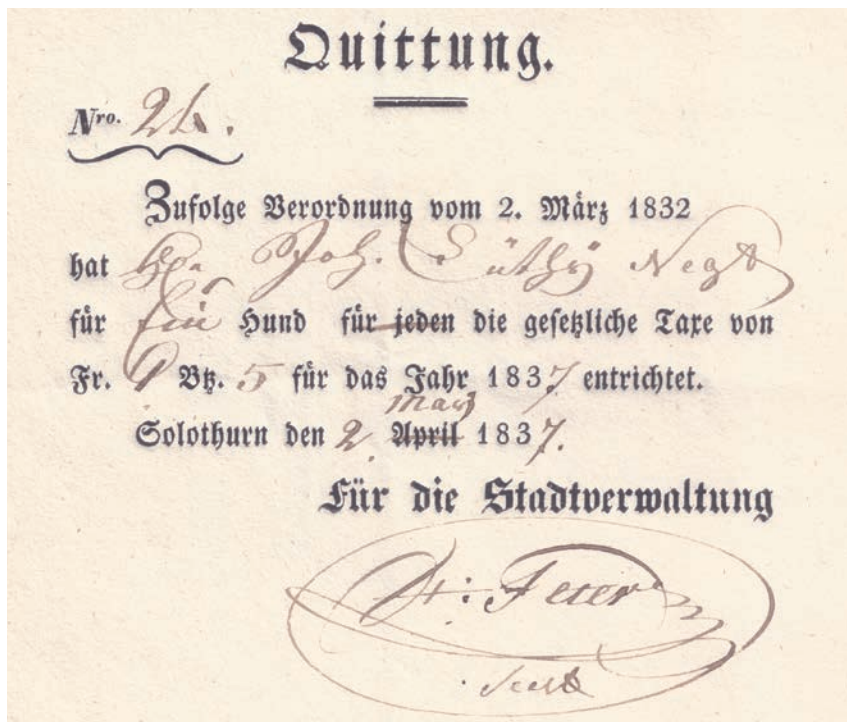 Quittung.
Nro. 26.
Zufolge Verordnung vom 2. März 1832
hat Hr. Joh. Lüthÿ Negt
für Ein Hund für jeden die gesetzliche Taxe von
Fr. 1 Btz. 5 für das Jahr 1837 entrichtet.
März
Solothurn den 2. April 1837.
Für die Stadtverwaltung
St: Peter